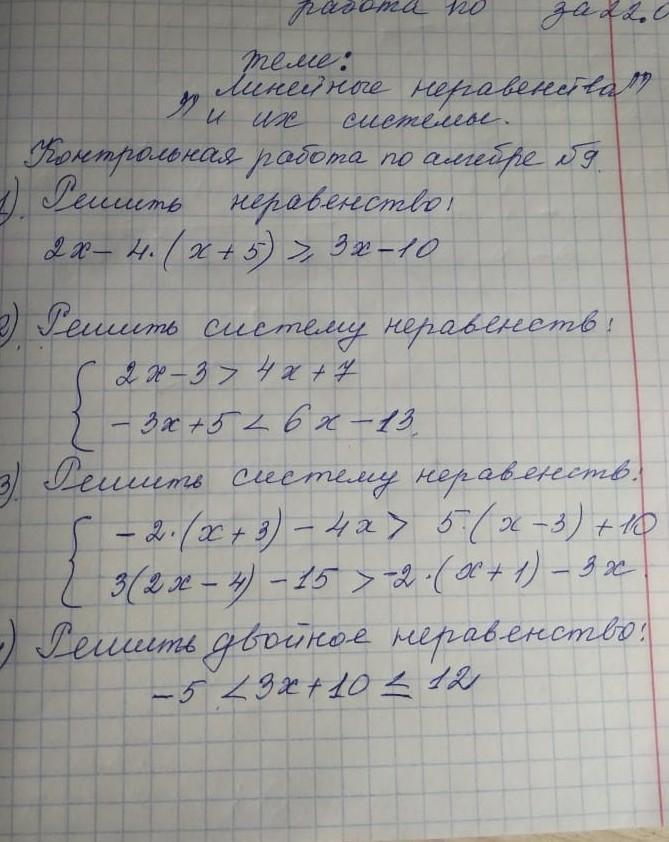 работа по за 22.0
теме:
„Линейные неравенства"
и их системы.
Контрольная работа по алгебре №9.
1). Решить неравенство:
2x - 4·(x+5) ⩾ 3x-10
2). Решить систему неравенств:
{ 2x-3 > 4x+7
-3x+5 < 6x-13.
3) Решить систему неравенств:
{ -2·(x+3) - 4x > 5·(x-3) + 10
3(2x-4) - 15 > -2·(x+1) - 3x.
) Решить двойное неравенство:
-5 < 3x+10 ≤ 12